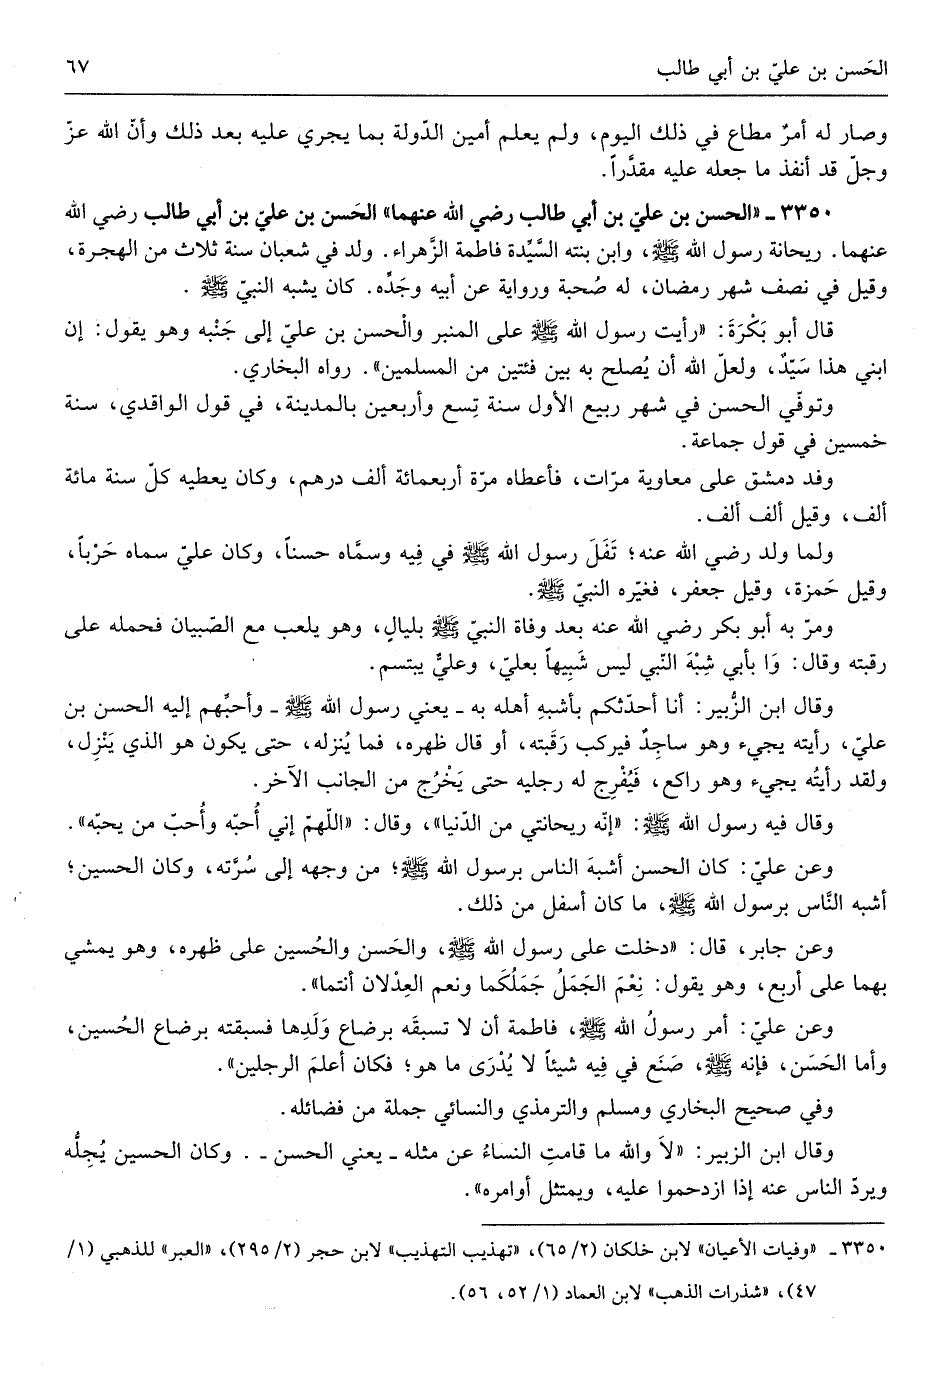 الحَسن بن عليّ بن أبي طالب ٦٧
وصار له أمرٌ مطاع في ذلك اليوم، ولم يعلم أمين الدّولة بما يجري عليه بعد ذلك وأنّ الله عزّ
وجلّ قد أنفذ ما جعله عليه مقدَّراً.
٣٣٥٠ ـ «الحسن بن عليّ بن أبي طالب رضي الله عنهما» الحَسن بن عليّ بن أبي طالب رضي الله
عنهما. ريحانة رسول الله ﷺ، وابن بنته السَّيِّدة فاطمة الزَّهراء. ولد في شعبان سنة ثلاث من الهجرة،
وقيل في نصف شهر رمضان، له صُحبة ورواية عن أبيه وجَدِّه. كان يشبه النبيّ ﷺ .
قال أبو بَكْرَةَ: «رأيت رسول الله ﷺ على المنبر والْحسن بن عليّ إلى جَنْبه وهو يقول: إن
ابني هذا سَيّدٌ، ولعلّ الله أن يُصلح به بين فئتين من المسلمين». رواه البخاري.
وتوفّي الحسن في شهر ربيع الأول سنة تِسع وأربعين بالمدينة، في قول الواقدي، سنة
خمسين في قول جماعة.
وفد دمشق على معاوية مرّات، فأعطاه مرّة أربعمائة ألف درهم، وكان يعطيه كلّ سنة مائة
ألف، وقيل ألف ألف.
ولما ولد رضي الله عنه؛ تَفَلَ رسول الله ﷺ في فِيه وسمَّاه حسناً، وكان عليّ سماه حَرْباً،
وقيل حَمزة، وقيل جعفر، فغيّره النبيّ ﷺ.
ومرّ به أبو بكر رضي الله عنه بعد وفاة النبيّ ﷺ بليالٍ، وهو يلعب مع الصّبيان فحمله على
رقبته وقال: وَا بأبي شِبْهَ النّبي ليس شَبِيهاً بعليّ، وعليٌّ يبتسم.
وقال ابن الزُّبير: أنا أحدّثكم بأشبهِ أهله به ـ يعني رسول الله ﷺ ـ وأحبِّهم إليه الحسن بن
عليّ، رأيته يجيء وهو ساجِدٌ فيركب رَقَبته، أو قال ظهره، فما يُنزله، حتى يكون هو الذي يَنْزِل،
ولقد رأيتُه يجيء وهو راكع، فَيُفْرِج له رجليه حتى يَخْرُج من الجانب الآخر.
وقال فيه رسول الله ﷺ: «إنّه ريحانتي من الدّنيا»، وقال: «اللّهمّ إني أُحبّه وأُحبّ من يحبّه».
وعن عليّ: كان الحسن أشبهَ الناس برسول الله ﷺ؛ من وجهه إلى سُرَّته، وكان الحسين؛
أشبه النَّاس برسول الله ﷺ، ما كان أسفل من ذلك.
وعن جابر، قال: «دخلت على رسول الله ﷺ، والحَسن والحُسين على ظهره، وهو يمشي
بهما على أربع، وهو يقول: نِعْمَ الجَمَلُ جَمَلُكَما ونعم العِدْلان أنتما».
وعن عليّ: أمر رسولُ الله ﷺ، فاطمة أن لا تسبقَه برضاع وَلَدِها فسبقته برضاع الحُسين،
وأما الحَسَن، فإنه ﷺ، صَنَع في فِيه شيئاً لا يُدْرَى ما هو؛ فكان أعلمَ الرجلين».
وفي صحيح البخاري ومسلم والترمذي والنسائي جملة من فضائله.
وقال ابن الزبير: «لاَ والله ما قامتِ النساءُ عن مثله ـ يعني الحسن ـ . وكان الحسين يُجِلُّه
ويردّ الناس عنه إذا ازدحموا عليه، ويمتثل أوامره».
٣٣٥٠ ـ «وفيات الأعيان» لابن خلكان (٦٥/٢)، «تهذيب التهذيب» لابن حجر (٢٩٥/٢)، «العبر» للذهبي (١/
٤٧)، «شذرات الذهب» لابن العماد (٥٢/١، ٥٦).